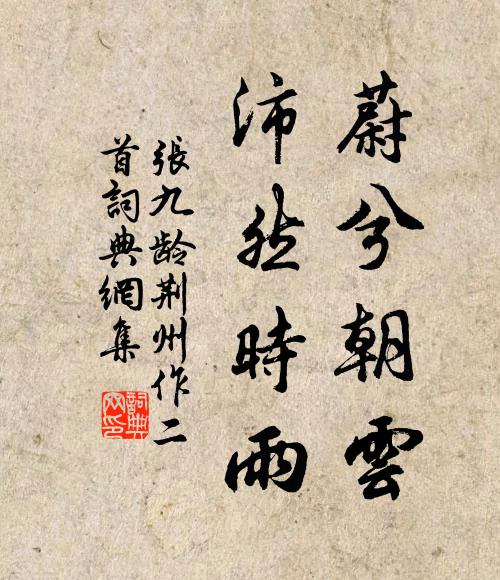 蔚兮朝雲
沛然時雨
張九龄荆州作二
首詞典網集
詞典
网印